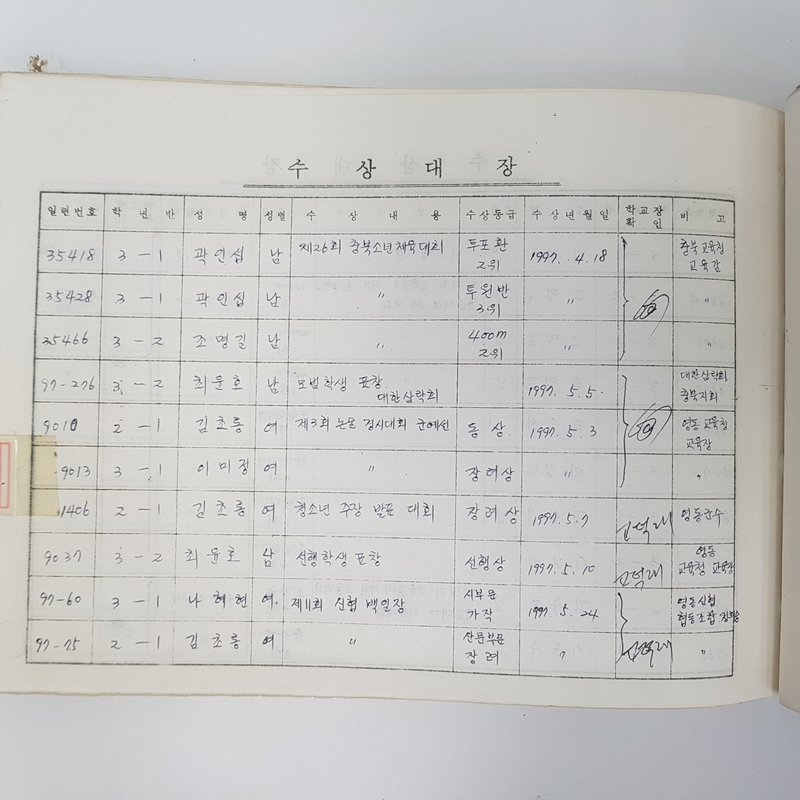 수 상 대 장
일련번호 학 년 반 성 명 성별 수 상 내 용 수상등급 수 상 년 월 일 학교장 확 인 비 고
35418 3-1 곽인섭 남 제26회 충북소년체육대회 투포환 2위 1997. 4. 18 충북교육청 교육감
35428 3-1 곽인섭 남 〃 투원반 3위 〃 〃
35466 3-2 조명길 남 〃 400m 2위 〃 〃
97-276 3-2 최윤호 남 모범학생 표창 대한삼락회 1997. 5. 5. 대한삼락회 충북지회
9010 2-1 김초롱 여 제3회 논술 경시대회 군예선 동상. 1997. 5. 3 영동교육청 교육장
9013 3-1 이미정 여 〃 장려상 〃 〃
1406 2-1 김초롱 여 청소년 주장 발표 대회 장려상 1997. 5. 7 영동군수
9037 3-2 최윤호 남 선행학생 표창 선행상 1997. 5. 10 영동 교육청 교육장
97-60 3-1 나혜현 여. 제11회 신협 백일장 시부문 가작 1997. 5. 24 영동신협 협동조합
97-75 2-1 김초롱 여 〃 산문부문 장려 〃 〃